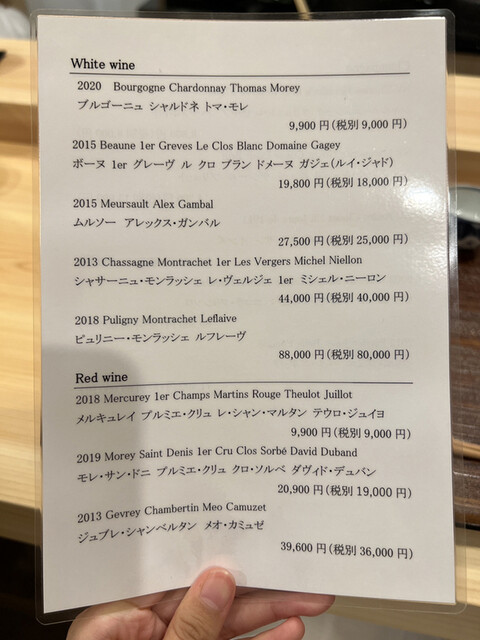 White wine
2020 Bourgogne Chardonnay Thomas Morey
ブルゴーニュ シャルドネ トマ・モレ
9,900 円(税別 9,000 円)
2015 Beaune 1er Greves Le Clos Blanc Domaine Gagey
ボーヌ 1er グレーヴ ル クロ ブラン ドメーヌ ガジェ(ルイ・ジャド)
19,800 円(税別 18,000 円)
2015 Meursault Alex Gambal
ムルソー アレックス・ガンバル
27,500 円(税別 25,000 円)
2013 Chassagne Montrachet 1er Les Vergers Michel Niellon
シャサーニュ・モンラッシェ レ・ヴェルジェ 1er ミシェル・ニーロン
44,000 円(税別 40,000 円)
2018 Puligny Montrachet Leflaive
ピュリニー・モンラッシェ ルフレーヴ
88,000 円(税別 80,000 円)
Red wine
2018 Mercurey 1er Champs Martins Rouge Theulot Juillot
メルキュレイ プルミエ・クリュ レ・シャン・マルタン テウロ・ジュイヨ
9,900 円(税別 9,000 円)
2019 Morey Saint Denis 1er Cru Clos Sorbé David Duband
モレ・サン・ドニ プルミエ・クリュ クロ・ソルベ ダヴィド・デュバン
20,900 円(税別 19,000 円)
2013 Gevrey Chambertin Meo Camuzet
ジュブレ・シャンベルタン メオ・カミュゼ
39,600 円(税別 36,000 円)